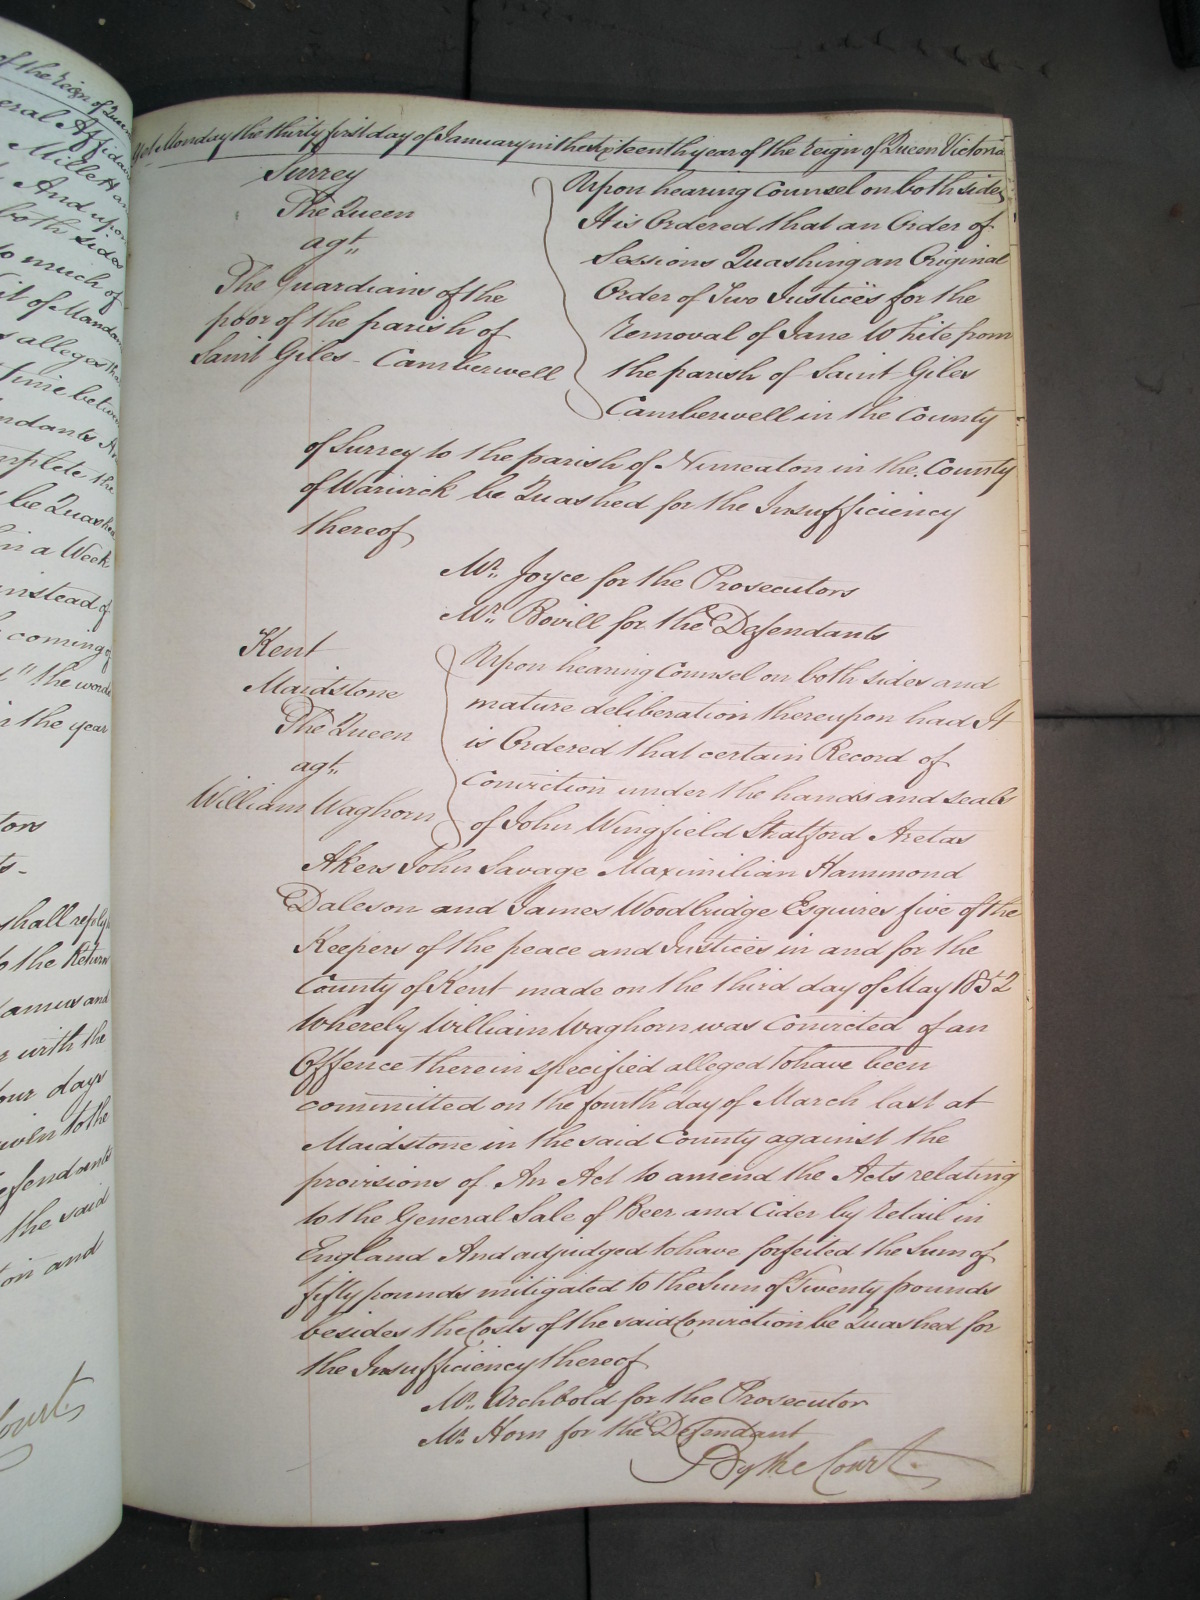 Yet Monday the thirty first day of January in the sixteenth year of the reign of Queen Victoria
Surrey
The Queen
agt,,
The Guardians of the
poor of the parish of
Saint Giles - Camberwell
Upon hearing Counsel on both sides
It is Ordered that an Order of
Sessions Quashing an Original
Order of Two Justices for the
removal of Jane White from
the parish of Saint Giles
Camberwell in the County
of Surrey to the parish of Nuneaton in the County
of Warwick be Quashed for the Insufficiency
thereof
Mr,, Joyce for the Prosecutors
Mr,, Bovill for the Defendants
Kent
Maidstone
The Queen
agt,,
William Waghorn
Upon hearing Counsel on both sides and
mature deliberation thereupon had It
is Ordered that certain Record of
Conviction under the hands and seals
of John Wingfield Stratford Aretas
Akers John Savage Maximilian Hammond
Daleson and James Woodbridge Esquires five of the
Keepers of the peace and Justices in and for the
County of Kent made on the third day of May 1852
Whereby William Waghorn was Convicted of an
Offence therein specified alleged to have been
committed on the fourth day of March last at
Maidstone in the said County against the
provisions of An Act to amend the Acts relating
to the General Sale of Beer and Cider by retail in
England And adjudged to have forfeited the Sum of
fifty pounds mitigated to the Sum of Twenty pounds
besides the Costs of the said Conviction be Quashed for
the Insufficiency thereof
Mr,, Archbold for the Prosecutor
Mr,, Horn for the Defendant
By the Court.
of the reign of Queen
Millett
And upon
both sides
so much of
alleges
time
complete the
be Quashed
in a Week
instead of
coming
the words
in the year
shall reply
to the Return
and
with the
four days
to the
Defendants
the said
and
Court.